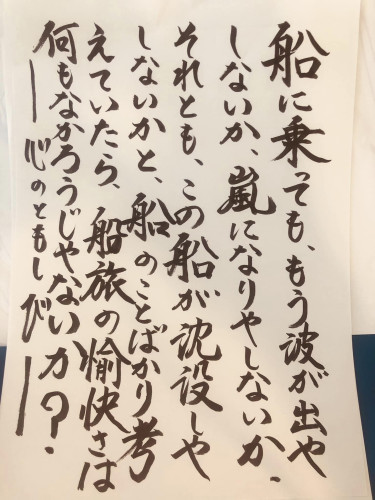 船に乗っても、もう波が出や
しないか、嵐になりやしないか、
それとも、この船が沈設しや
しないかと、船のことばかり考
えていたら、船旅の愉快さは
何もなかろうじゃないか？.
――心のともしび――